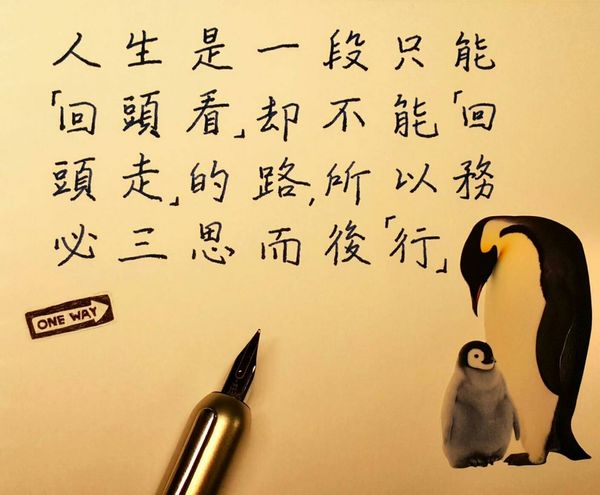 人生是一段只能
「回頭看」却不能「回
頭走」的路,所以務
必三思而後「行」
ONE WAY